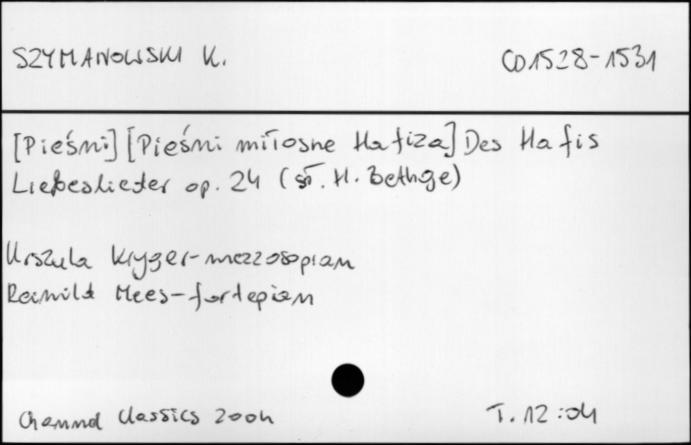 SZYMANOWSKI K.
CD1528-1531
[Pieśni] [Pieśni miłosne Hafiza] Des Hafis
Liebeslieder op. 24 (sł. H. Bethge)
Urszula Kryger-mezzosopran
Reinild Mees-fortepian
Channel Classics 2004
T. 12:04